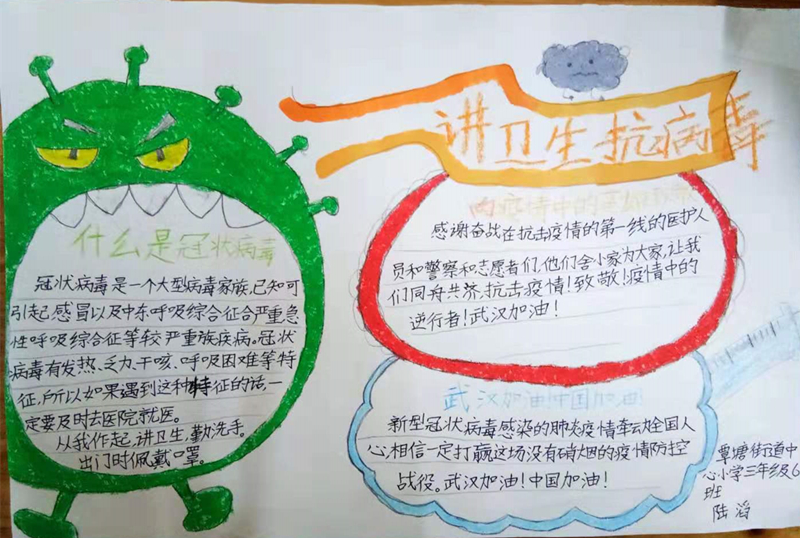 讲卫生抗病毒
什么是冠状病毒
冠状病毒是一个大型病毒家族,已知可
引起感冒以及中东呼吸综合征合严重急
性呼吸综合征等较严重族疾病。冠状
病毒有发热、乏力、干咳、呼吸困难等特
征,所以如果遇到这种特征的话一
定要及时去医院就医。
从我作起,讲卫生,勤洗手。
出门时佩戴口罩。
向疫情中的医
感谢奋战在抗击疫情的第一线的医护人
员和警察和志愿者们,他们舍小家为大家,让我
们同舟共济,抗击疫情!致敬!疫情中的
逆行者!武汉加油!
武汉加油!中国加油!
新型冠状病毒感染的肺炎疫情牵动全国人
心,相信一定打赢这场没有硝烟的疫情防控
战役。武汉加油!中国加油!
覃塘街道中
心小学三年级6
班
陆滔